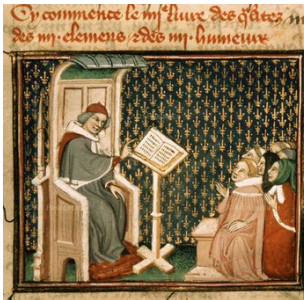 Cy commence le iiij liure des q̃litez
des iiij. elemens ⁊ des iiij. humeurs